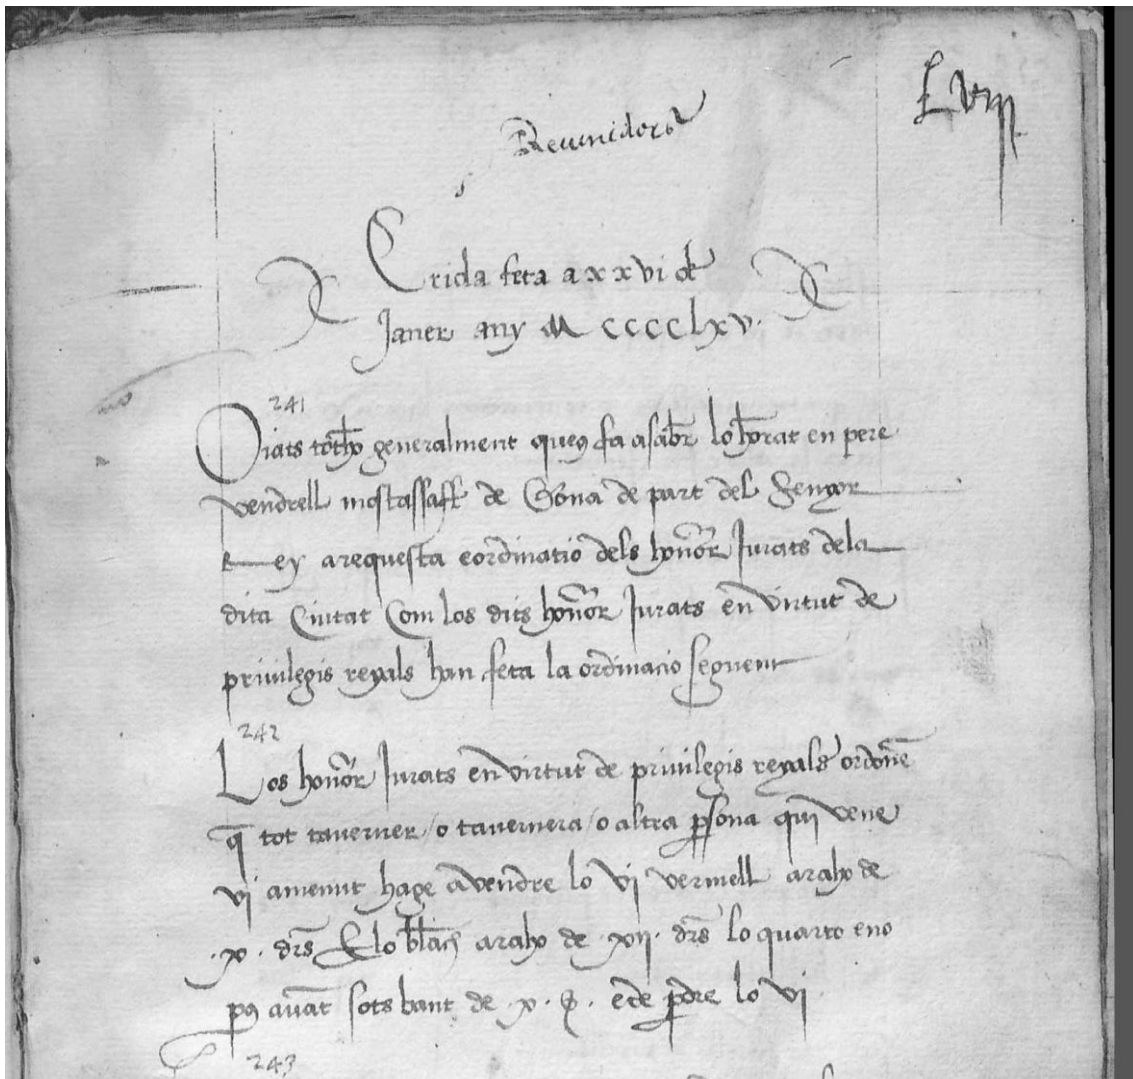 Lviiij
Revenidors
Crida feta a xxvi de
Janer any M CCCC lxv.
241
Oiats tothõ generalment queus fa asaber lo honrat en pere
vendrell mostassaff de Gerona de part del Senyor
Rey arequesta eordinatio dels honor Jurats dela
dita Ciutat Com los dits honor Jurats en virtut de
privilegis reyals han feta la ordinacio seguent
242
Los honor Jurats en virtut de privilegis reyals ordonen
q tot taverner / o tavernera / o altra persona qui vene
vi amenut hage avendre lo vi vermell arahó de
.x. drs E lo blanch arahó de .xii. drs lo quarto eno
pus avant sots bant de .x. s. ede perdre lo vi
243